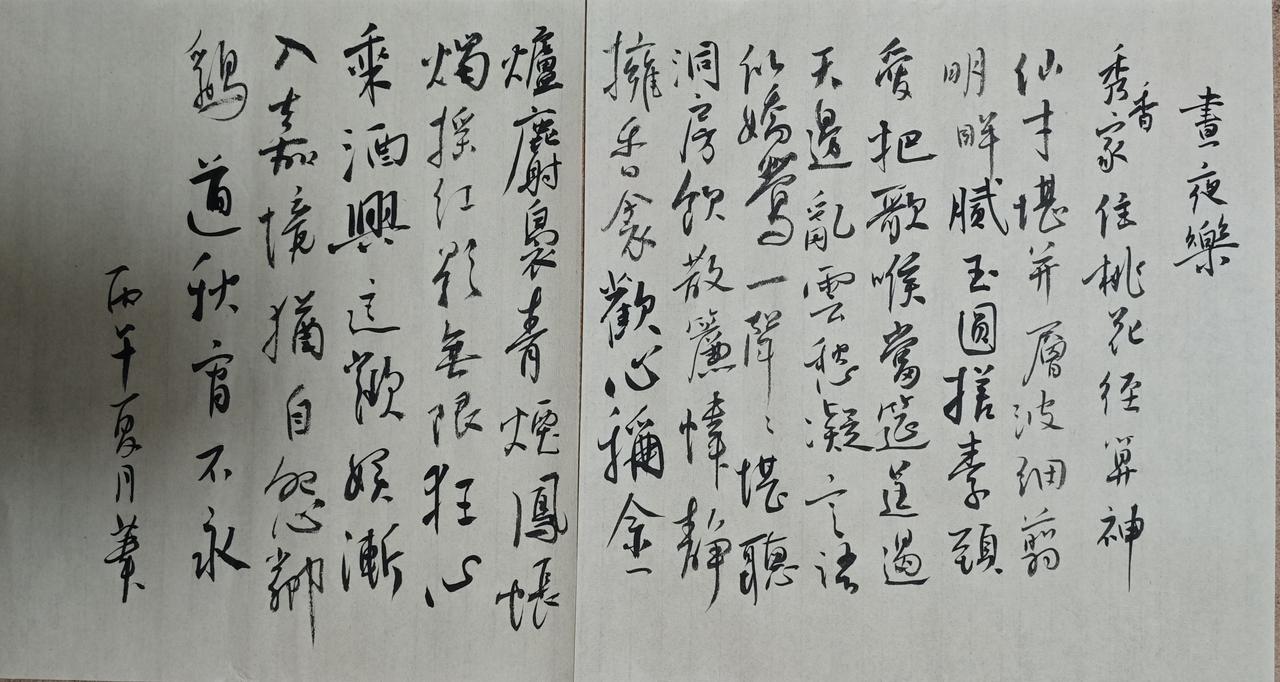 晝夜樂
秀香家住桃花径算神
仙才堪并層波細翦
明眸膩玉圓搓素頸
愛把歌喉當筵逞遏
天邊亂雲愁凝言語
似嬌鶯一聲〻堪聽
洞房飲散簾幃靜
擁香衾歡心稱金
爐麝裊青煙鳳帳
燭搖紅影無限狂心
乘酒興這歡娛漸
入嘉境猶自怨鄰
鷄道秋宵不永
丙午夏月華